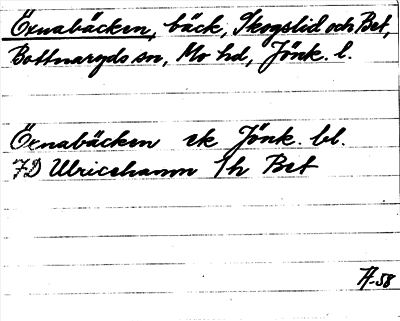 Öxnabäcken, bäck, Skogslid och Bet,
Bottnaryds sn, Mo hd, Jönk. l.
Öxnabäcken ek Jönk. bl.
7D Ulricehamn 1h Bet
A-58